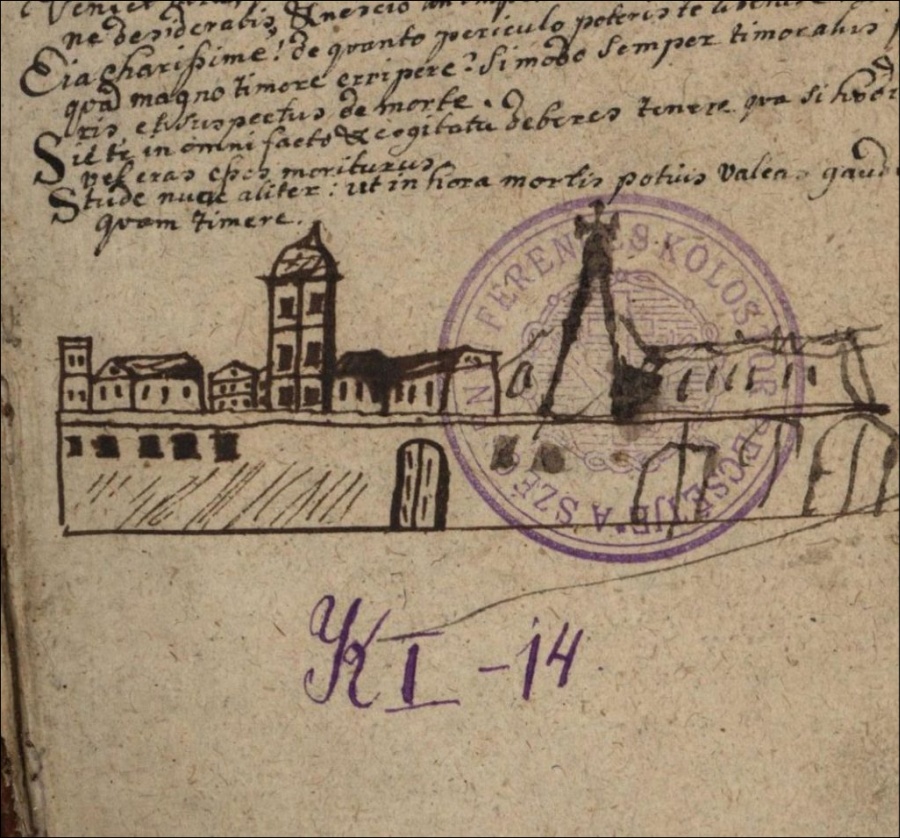 Veniet
ne desiderabis, & nescio an
Eia charissime! de quanto periculo poteris te liberare
quā magno timore erripere? si modo semper timoratus
ris, et suspectus de morte.
Sic te in omni facto & cogitatu deberes tenere qua si hodi
vel cras esses moriturus
Stude nunc aliter: ut in hora mortis potius valeas gaud
quam timere.
A SZÉ FERENCZES KOLOSTOR PECSÉTJE
K I - 14